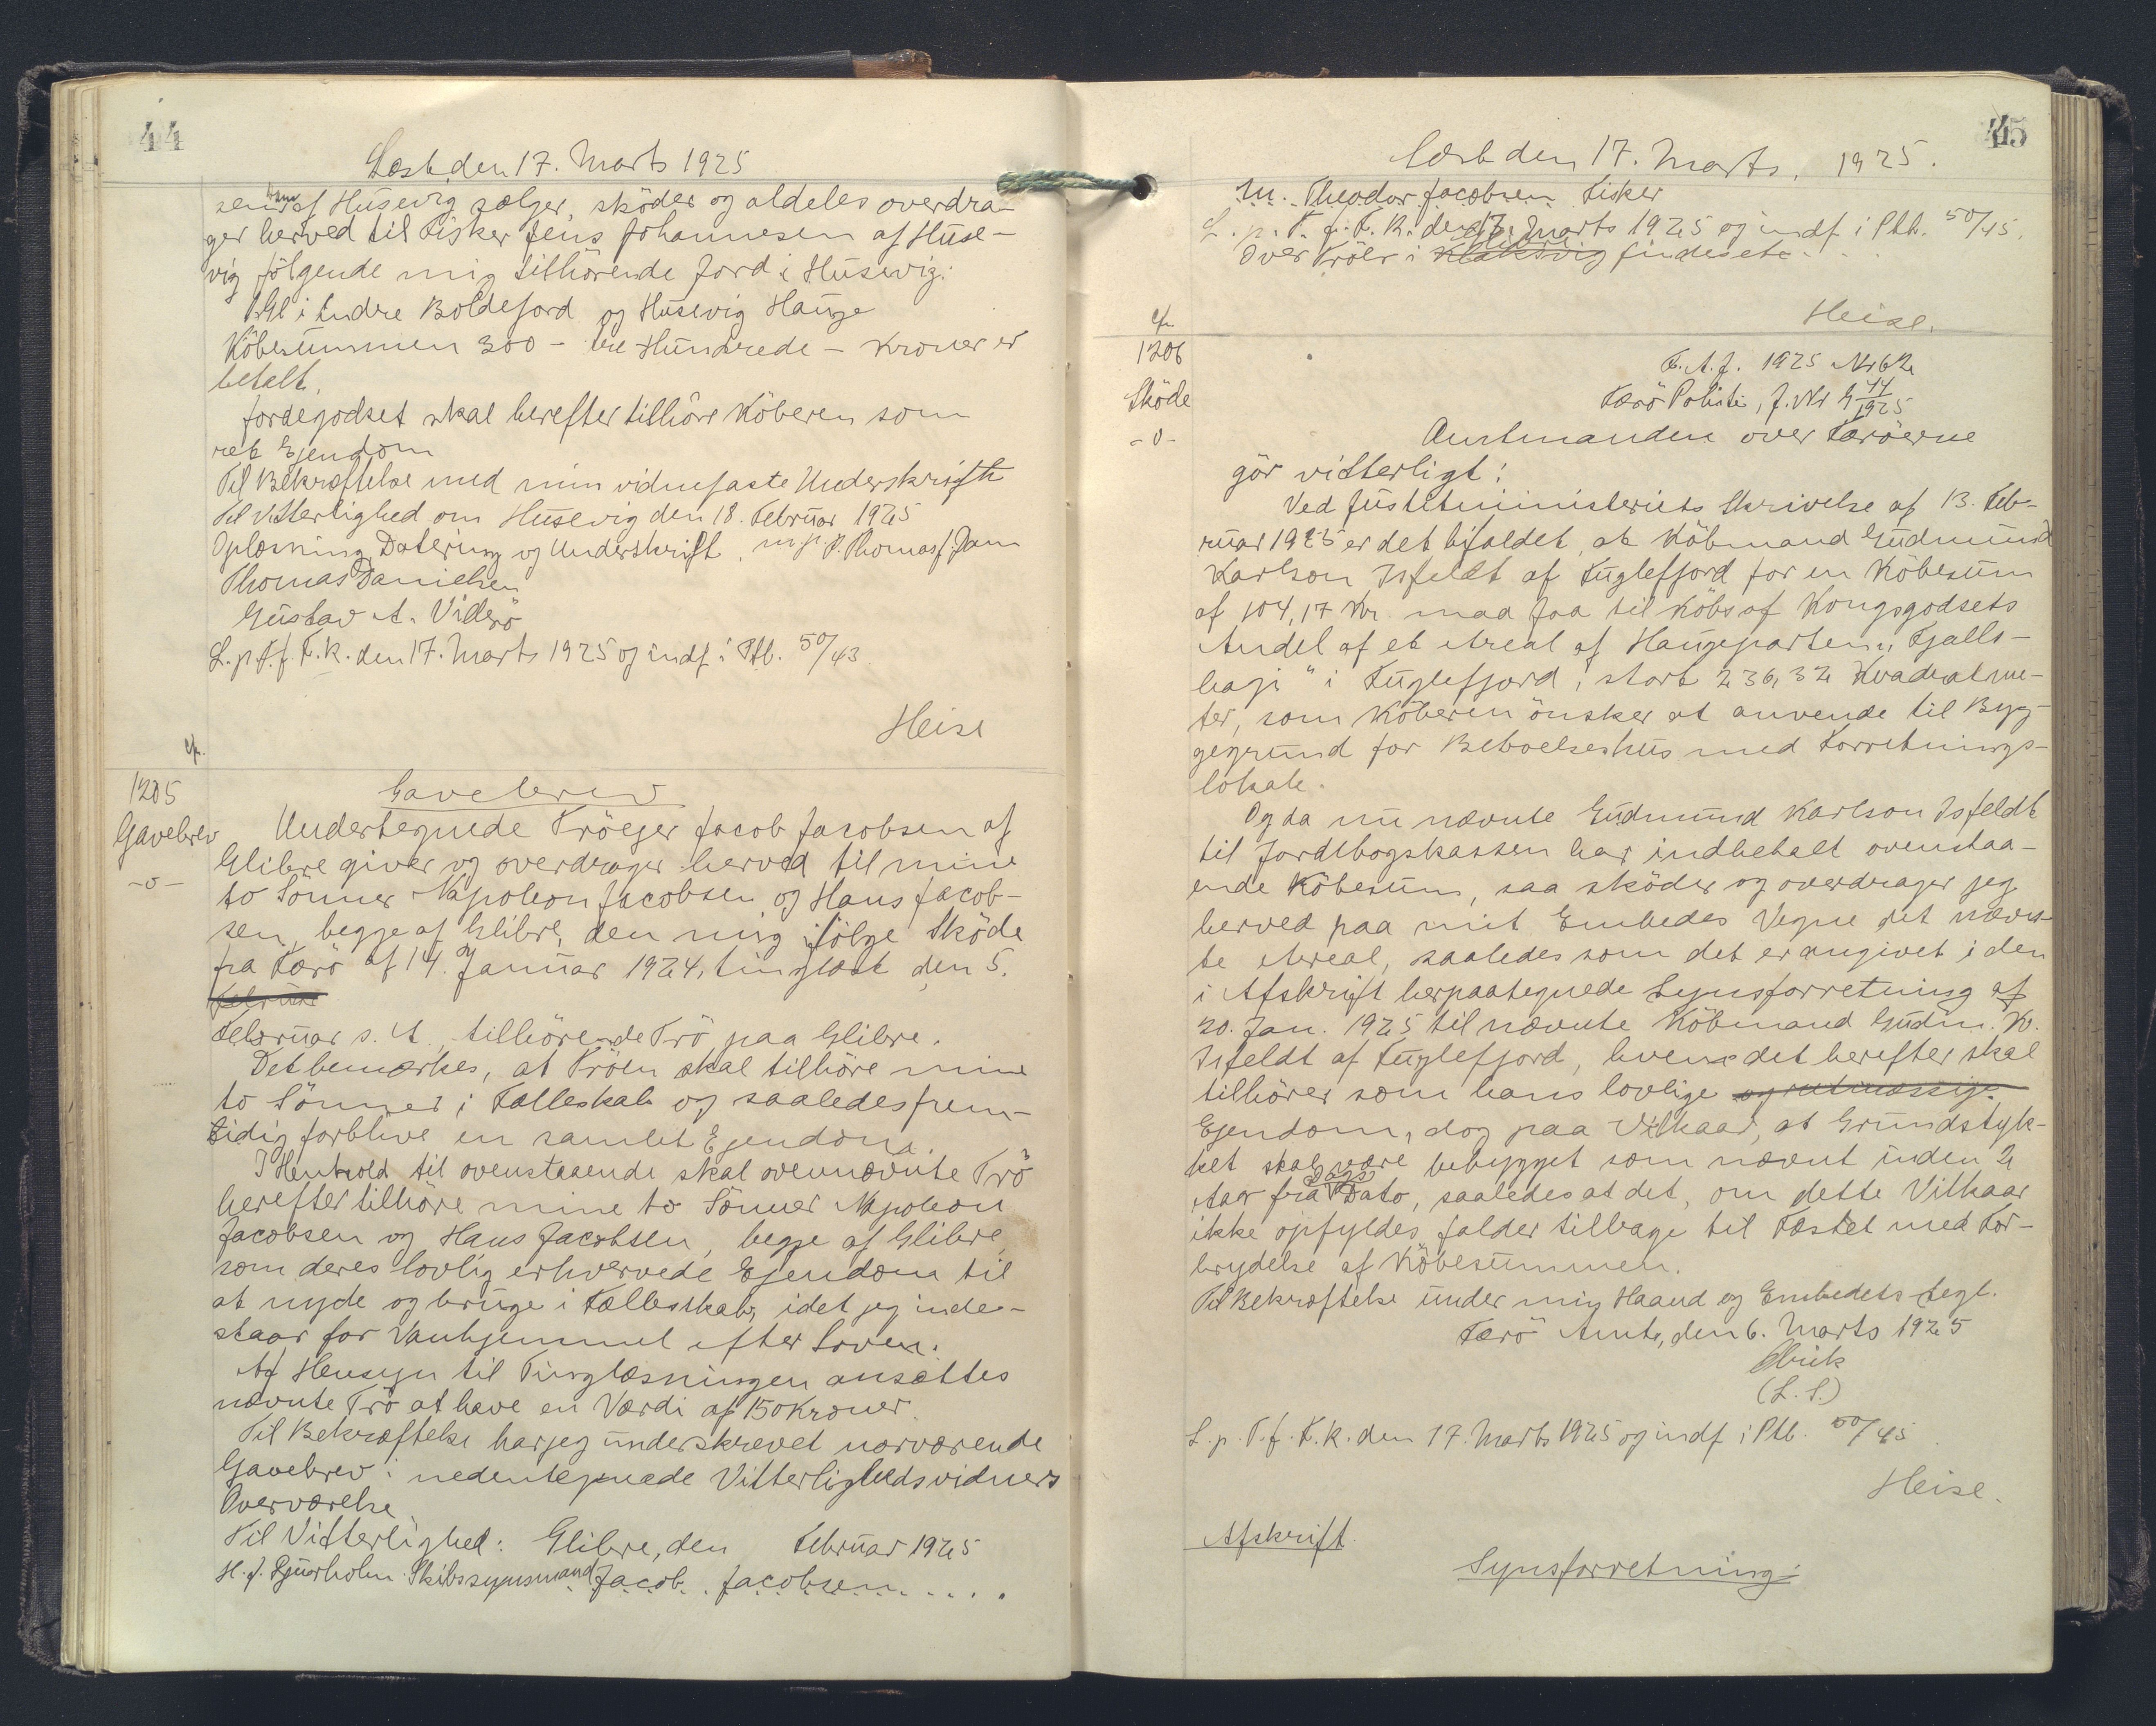 44
Læst den 17. Marts 1925
sen af Husevig sælger, sköder og aldeles overdra-
ger herved til Fisker Jens Johannesen af Huse-
vig fölgende mig tilhörende Jord i Husevig:
1 Gl i Indre Böldefjord og Husevig Hauge
Köbesummen 300 - tre Hundrede - Kroner er
betalt.
Jordegodset skal herefter tilhöre Köberen som
ret Ejendom
Til Bekræftelse med min vidnefaste Underskrift
Til Vitterlighed om Husevig den 18. Februar 1925
Oplæsning, Datering og Underskrift. m. p. P. Thomas J. Jam
Thomas Danielsen
Gustav A. Viderö
L. p. T. f. F. K. den 17. Marts 1925 og indf. i Ptb. 50/43.
Heise
cfr.
1205
Gavebrev
-o-
Gavebrev
Undertegnede Tröejer Jacob Jacobsen af
Glibre giver og overdrager herved til mine
to Sönner Napoleon Jacobsen og Hans Jacob-
sen, begge af Glibre, den mig ifölge Sköde
fra Færö af 14. Januar 1924, tinglæst den 5.
Februar
Februar s. A., tilhörende Trö paa Glibre.
Det bemærkes, at Tröen skal tilhöre mine
to Sönner i Fælleskab og saaledes frem-
tidig forblive en samlet Ejendom.
I Henhold til ovenstaaende skal ovennævnte Trö
herefter tilhöre mine to Sönner Napoleon
Jacobsen og Hans Jacobsen, begge af Glibre,
som deres lovlig erhvervede Ejendom til
at nyde og bruge i Fælleskab, idet jeg inde-
staar for Vanhjemmel efter Loven.
Af Hensyn til Tinglæsningen ansættes
nævnte Trö at have en Værdi af 150 Kroner.
Til Bekræftelse har jeg underskrevet nærværende
Gavebrev i nedentegnede Vitterlighedsvidners
Overværelse
Til Vitterlighed: Glibre, den Februar 1925
H. J. Djurholm Skibssynsmand Jacob Jacobsen....
45
Læst den 17. Marts, 1925.
M. Theodor Jacobsen Fisker
L. p. T. f. F. K. den 17. Marts 1925 og indf i Ptb. 50/45.
Over Tröer i Klaksvig Glibre findes etc...
Heise.
cfr
1206
Sköde
-o-
F. A. J. 1925 Nr 62
Færö Politi, J. Nr G 44/1925
Amtmanden over Færöerne
gör vitterligt:
Ved Justitsministeriets Skrivelse af 13. Feb-
ruar 1925 er det bifaldet, at Köbmand Gudmund
Karlson Isfeldt af Fuglefjord for en Köbesum
af 104,17 Kr. maa faa til Köbs af Kongsgodsets
Andel af et Areal af Haugeparten "Fjalls-
hagi" i Fuglefjord, stort 236,32 Kvadratme-
ter, som Köberen önsker at anvende til Byg-
gegrund for Beboelseshus med Forretnings-
lokale.
Og da nu nævnte Gudmund Karlson Isfeldt
til Jordebogskassen har indbetalt ovenstaa-
ende Köbesum, saa sköder og overdrager jeg
herved paa mit Embedes Vegne det nævn-
te Areal, saaledes som det er angivet i den
i Afskrift herpaategnede Synsforretning af
20. Jan. 1925 til nævnte Köbmand Gudm. K.
Isfeldt af Fuglefjord, hvem det herefter skal
tilhörer som hans lovlige og retmæssige
Ejendom, dog paa Vilkaar, at Grundstyk-
ket skal være bebygget som nævnt inden 2
Aar fra Dags Dato, saaledes at det, om dette Vilkaar
ikke opfyldes, falder tilbage til Fæstet med For-
brydelse af Köbesummen.
Til Bekræftelse under min Haand og Embedets Segl.
Færö Amt, den 6. Marts 1925
(L. S.)
L. p. T. f. F. K. den 17. Marts 1925 og indf i Ptb. 50/45
Heise.
Afskrift.
Synsforretning: